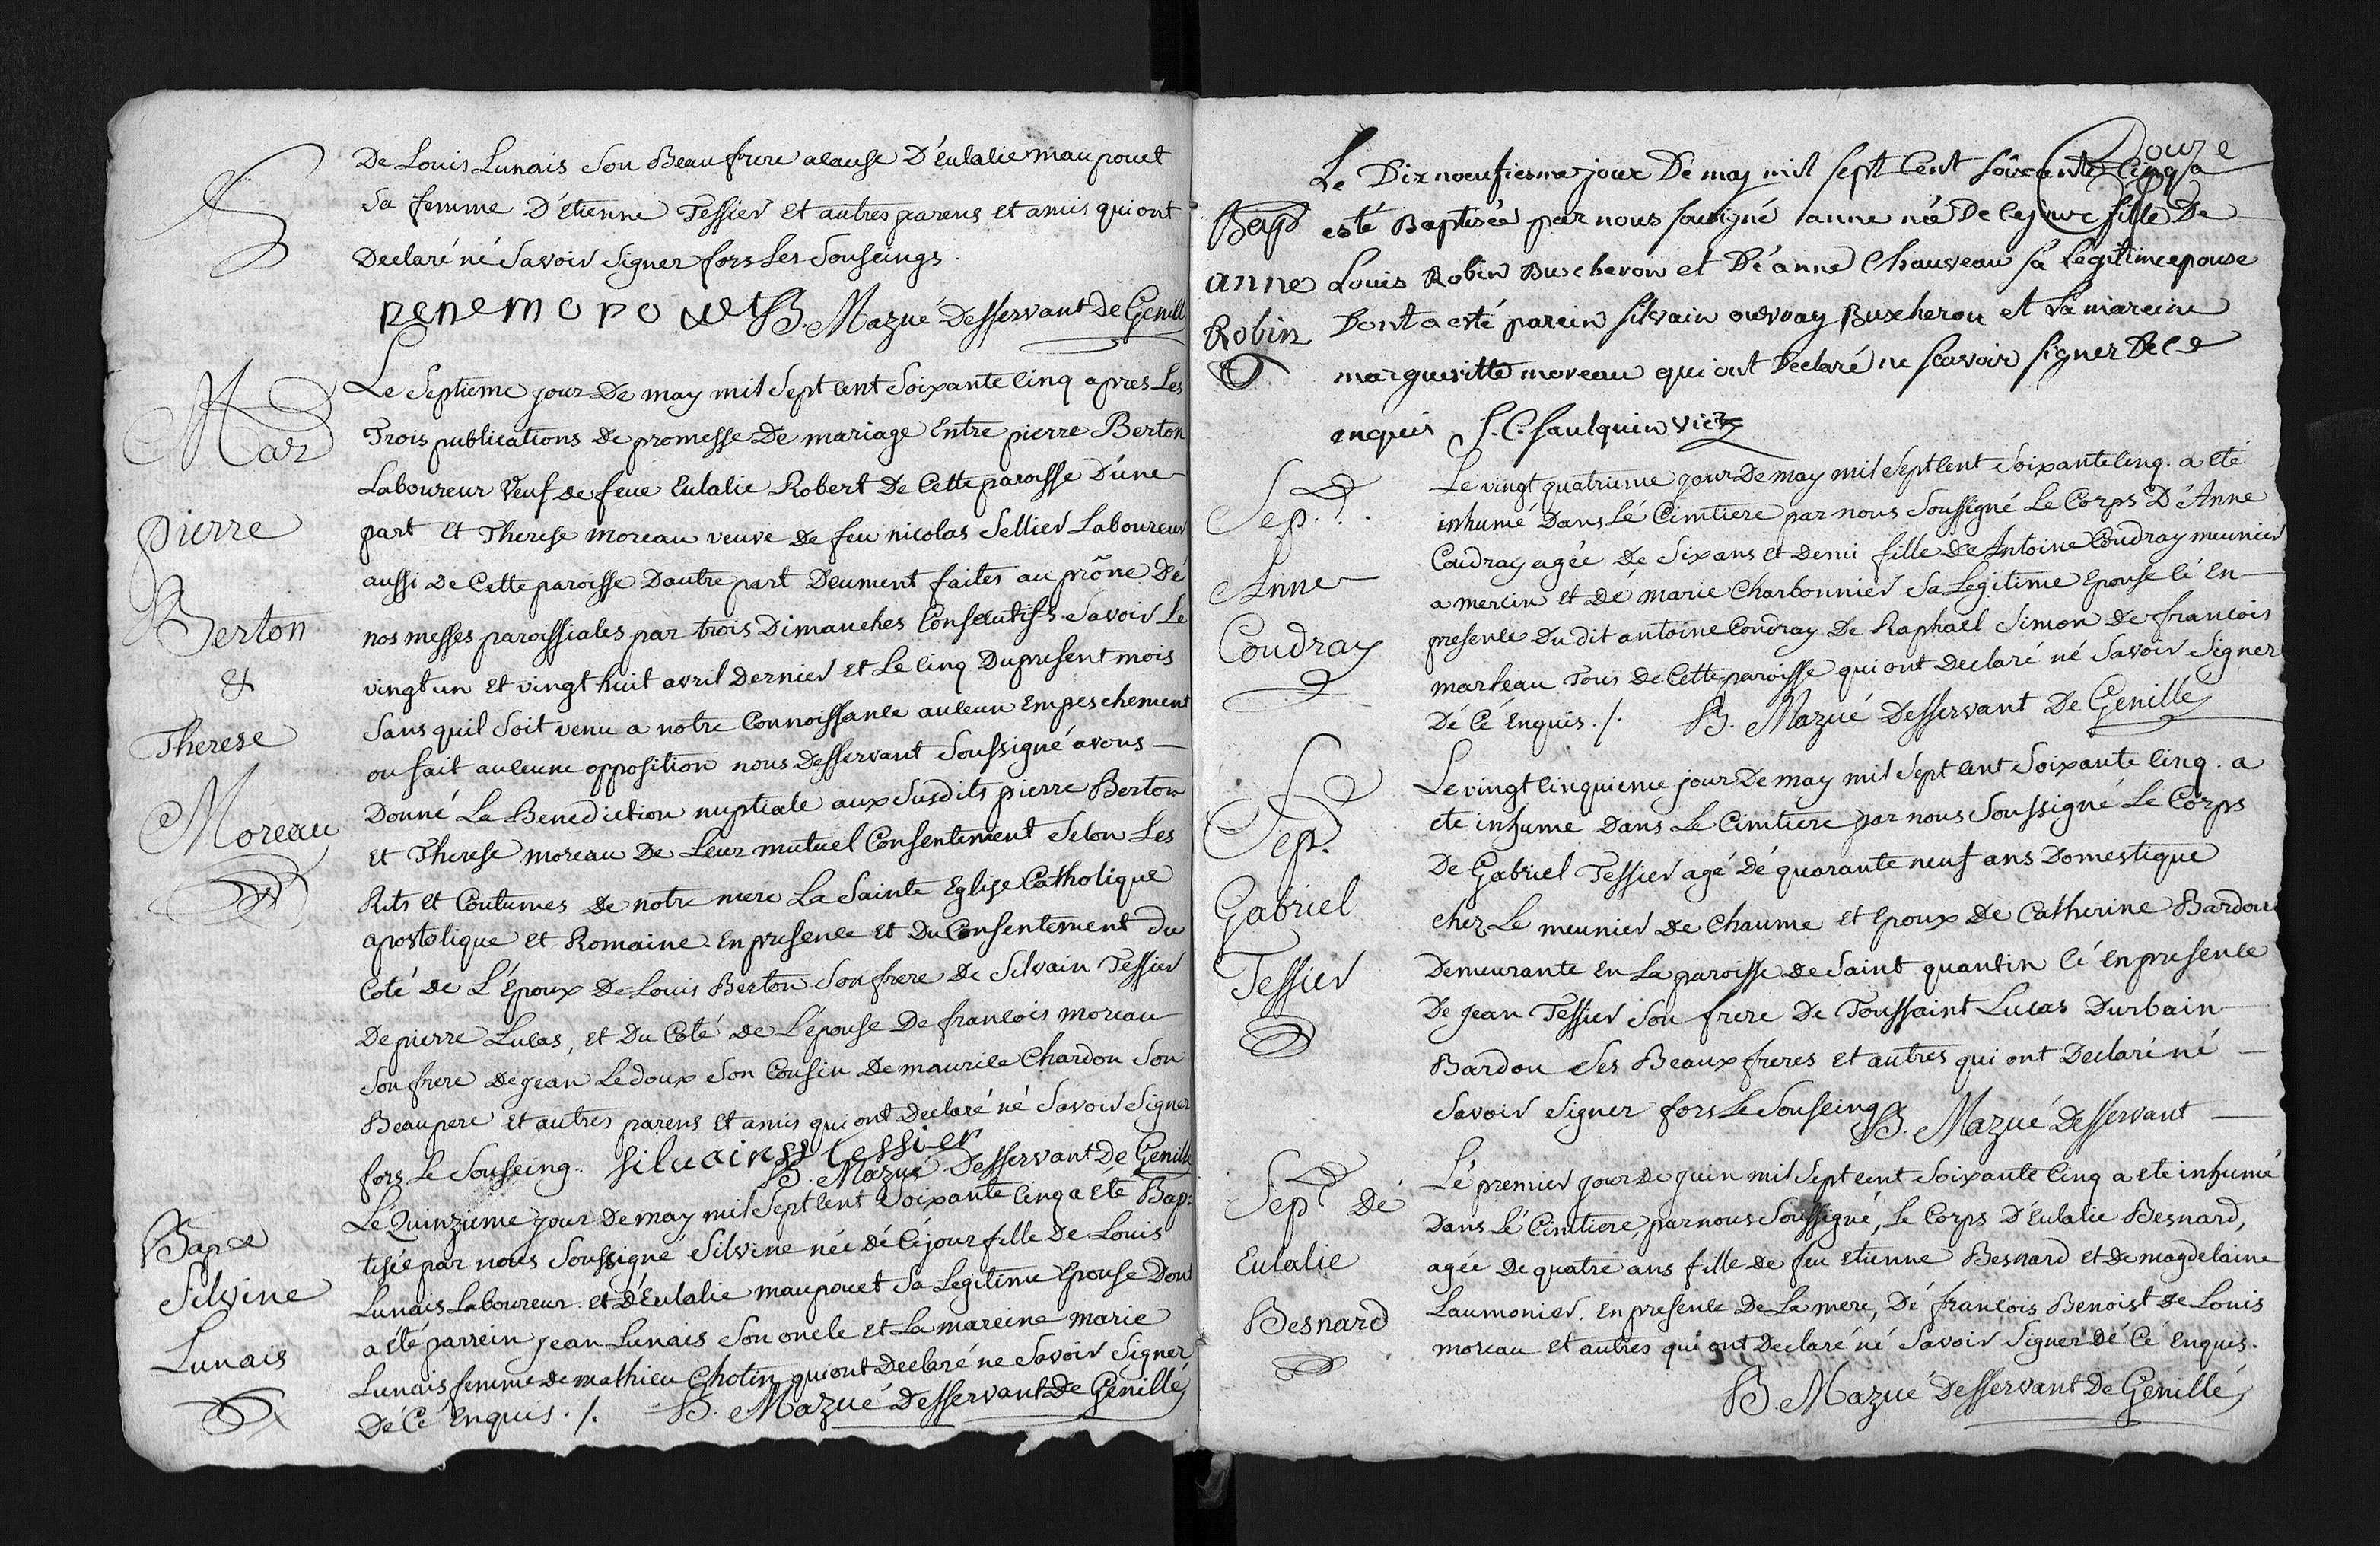 De Louis Lunais Son Beau frere acause D'Eulalie maupouet
Sa femme D'Etienne Tessier et autres parens et amis qui ont
Declaré né Savoir Signer fors Les Sousseings.
renemopouet B. Mazué Desservant De Genillé
Mar
pierre
Berton
&
Therese
Moreau
Le Septieme jour De may mil Sept cent Soixante cinq apres Les
Trois publications de promesse De mariage Entre pierre Berton
Laboureur Veuf de feue Eulalie Robert De Cette paroisse D'une
part Et Therese moreau veuve de feu nicolas Sellier Laboureur
aussi De Cette paroisse Dautre part Deument faites au prône De
nos messes paroissiales par trois Dimanches Consecutifs Savoir Le
vingt un Et vingt huit avril Dernier et Le cinq Du present mois
Sans quil Soit venu a notre Connoissance aucun Empeschement
ou fait aucune opposition nous Desservant Soussigné avons
Donné La Benediction nuptiale aux Susdits pierre Berton
Et Therese moreau De Leur mutuel Consentement Selon Les
Rits et Coutumes de notre mere La Sainte Eglise Catholique
apostolique et Romaine. En presence Et Du Consentement du
Coté de L'Epoux De Louis Berton Son frere De Silvain Tessier
De pierre Lucas, et Du Coté de L'épouse De francois moreau
Son frere de jean Ledoux Son Cousin De maurice Chardon Son
Beaupere et autres parens et amis qui ont Declaré né Savoir Signer
fors Le Sousseing. silvain tessier
B. Mazué Desservant De Genillé
Bap
Silvine
Lunais
Lé Quinzieme jour De may mil Sept cent Soixante cinq a eté Bap:
tisée par nous Soussigné Silvine née dé Cé jour fille De Louis
Lunais Laboureur. et D'Eulalie maupouet Sa Legitime Epouse Dont
a eté parrein jean Lunais Son oncle et La mareine marie
Lunais femme de mathieu Chotin qui ont Declaré ne Savoir Signer
Dé Cé Enquis. /. B. Mazué Desservant De Genillé
Douze
Bap
anne
Robin
Le Dixnoeufiesme jour De may mil sept Cent soixante Cinq a
esté Baptisée par nous sousigné anne née De Ce jour fille De
Louis Robin Buscheron et De anne Chauveau sa Legitime epouse
Dont a esté parein silvain ouvray Buscheron et La mareine
margueritte moreau qui ont Declaré ne scavoir signer De ce
enquis J. C. Faulquin vic
Sep.
Anne
Coudray
Le vingt quatrieme jour De may mil Sept Cent Soixante cinq. a eté
inhumé Dans Lé Cimtiere par nous Soussigné Le Corps D'Anne
Coudray agée de Six ans et Demi fille De Antoine Coudray meunier
a mercin et De marie Charbonnier Sa Legitime Epouse Cé En
presence Du dit antoine Coudray De Raphael Simon De francois
marteau Tous De Cette paroisse qui ont Declaré né Savoir Signer
Dé Cé Enquis. /. B. Mazué Desservant De Genillé
Sep.
Gabriel
Tessier
Le vingt cinquieme jour De may mil Sept Cent Soixante cinq. a
eté inhumé Dans Le Cimtiere par nous Soussigné Le Corps
De Gabriel Tessier agé Dé quarante neuf ans Domestique
chez Le meunier de Chaume et Epoux De Catherine Bardou
Demeurante En La paroisse de Saint quantin Cé En presence
De jean Tessier Son frere De Toussaint Lucas Durbain
Bardou Ses Beaux freres et autres qui ont Declaré né
Savoir Signer fors Le Sousseing B. Mazué Desservant
Sep.t Dé
Eulalie
Besnard
Lé premier jour De juin mil Sept cent Soixante Cinq a eté inhumé
Dans Lé Cimtiere, par nous Soussigné, Le Corps D'Eulalie Besnard,
agée De quatre ans fille de feu Etienne Besnard et De magdelaine
Laumonier. En presence De La mere, Dé francois Benoist de Louis
moreau et autres qui ont Declaré né Savoir Signer dé Cé Enquis.
B. Mazué Desservant De Genillé